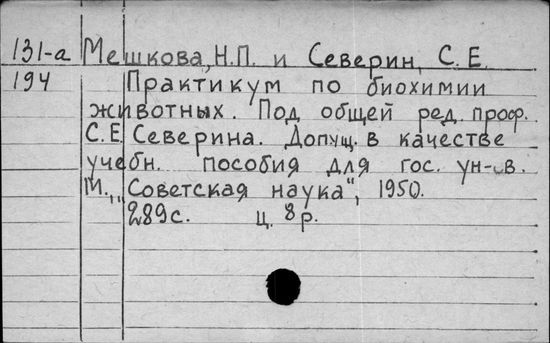 131-а Мешкова, Н.П. и Северин, С.Е.
194 Практикум по биохимии
животных. Под общей ред. проф.
С.Е. Северина. Допущ. в качестве
учебн. пособия для гос. ун-ов.
М., „Советская наука", 1950.
289с. Ц. 8р.